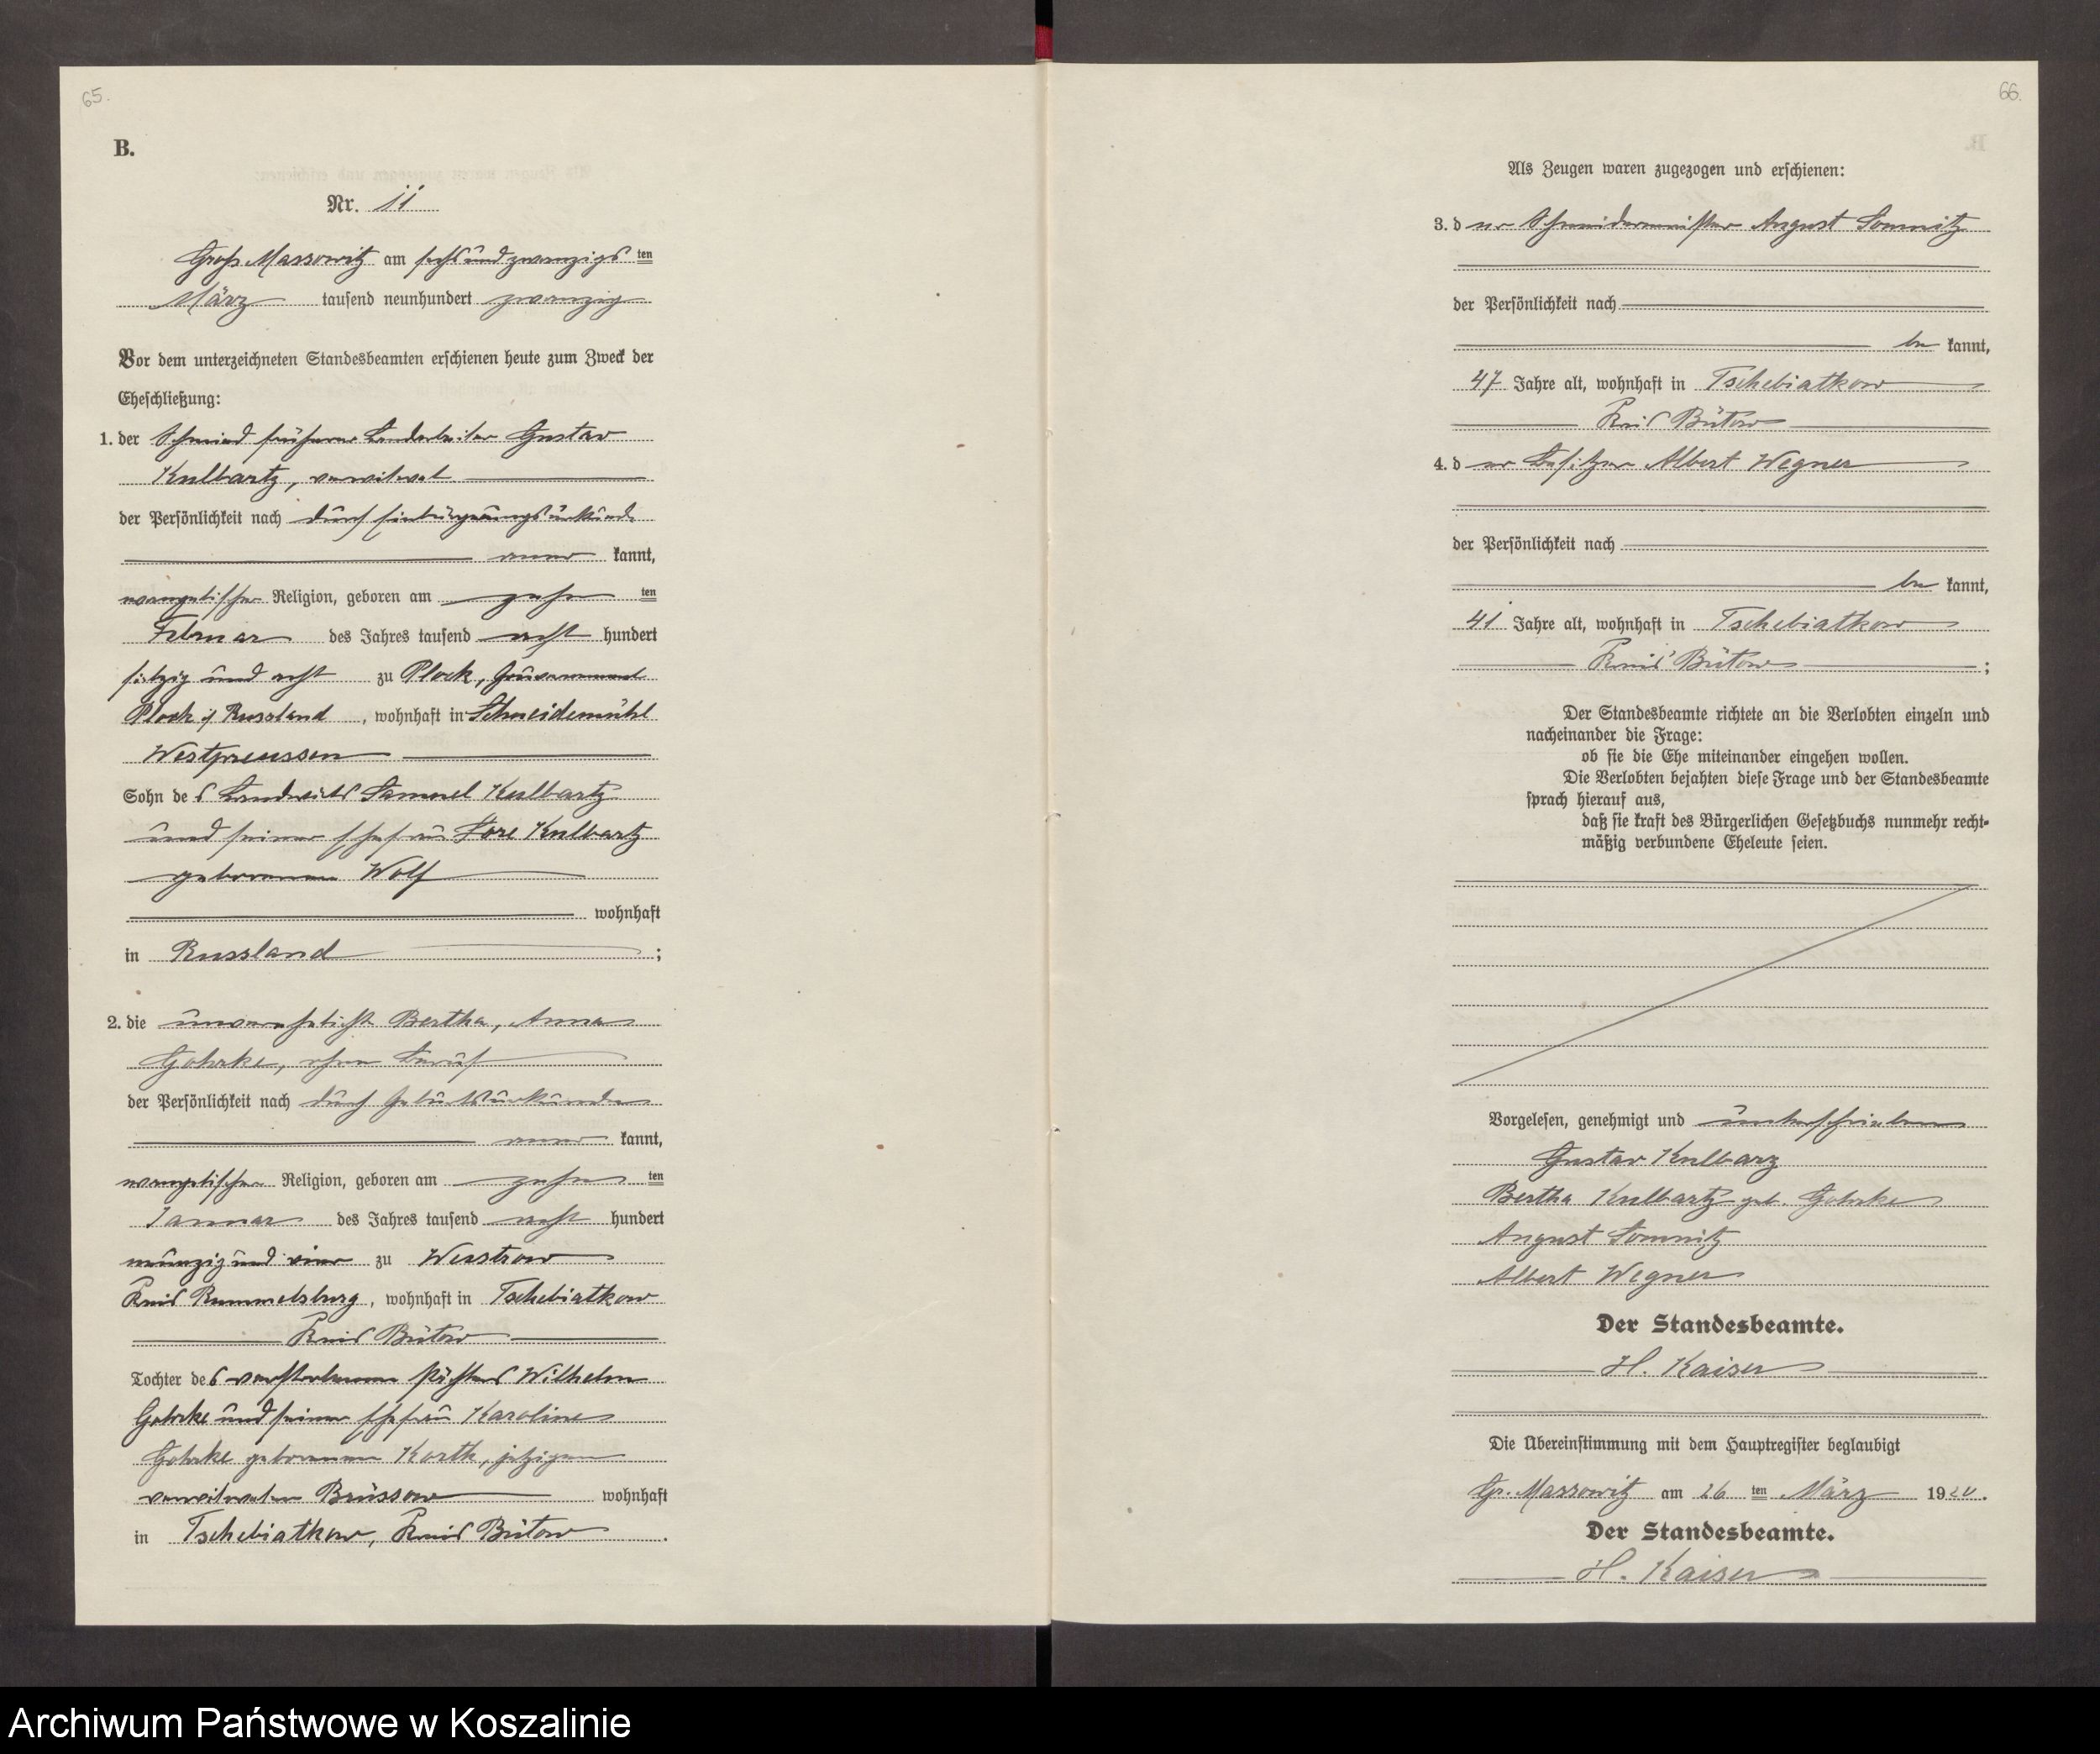 65.
B.
Nr. 11
Groß Massowitz am sechsundzwanzigsten
März tausend neunhundert zwanzig
Vor dem unterzeichneten Standesbeamten erschienen heute zum Zweck der
Eheschließung:
1. der Schmied früherer Landarbeiter Gustav
Kulbartz, verwitwet
der Persönlichkeit nach durch Einbürgerungsurkunde
anerkannt,
evangelischer Religion, geboren am zehnten
Februar des Jahres tausend acht hundert
siebzig und acht zu Plock, Gouvernement
Plock i/ Russland, wohnhaft in Schneidemühl
Westpreussen
Sohn des Landwirts Samuel Kulbartz
und seiner Ehefrau Lore Kulbartz
geborenen Wolf
wohnhaft
in Russland;
2. die unverehelichte Bertha, Anna
Gohrke, ohne Beruf
der Persönlichkeit nach durch Geburtsurkunde
anerkannt,
evangelischer Religion, geboren am zehnten
Januar des Jahres tausend acht hundert
neunzig und vier zu Wustrow
Kreis Rummelsburg, wohnhaft in Tschebiatkow
Kreis Bütow
Tochter des verstorbenen Pächters Wilhelm
Gohrke und seiner Ehefrau Karoline
Gohrke geborenen Korth, jetzigen
verwitweten Brüssow wohnhaft
in Tschebiatkow, Kreis Bütow.
66.
Als Zeugen waren zugezogen und erschienen:
3. der Schneidermeister August Somnitz
der Persönlichkeit nach
bekannt,
47 Jahre alt, wohnhaft in Tschebiatkow
Kreis Bütow
4. der Besitzer Albert Wegner
der Persönlichkeit nach
bekannt,
41 Jahre alt, wohnhaft in Tschebiatkow
Kreis Bütow;
Der Standesbeamte richtete an die Verlobten einzeln und
nacheinander die Frage:
ob sie die Ehe miteinander eingehen wollen.
Die Verlobten bejahten diese Frage und der Standesbeamte
sprach hierauf aus,
daß sie kraft des Bürgerlichen Gesetzbuchs nunmehr recht-
mäßig verbundene Eheleute seien.
Vorgelesen, genehmigt und unterschrieben
Gustav Kulbarz
Bertha Kulbartz geb. Gohrke
August Somnitz
Albert Wegner
Der Standesbeamte.
H. Kaiser
Die Übereinstimmung mit dem Hauptregister beglaubigt
Gr. Massowitz am 26ten März 1920.
Der Standesbeamte.
H. Kaiser
Archiwum Państwowe w Koszalinie